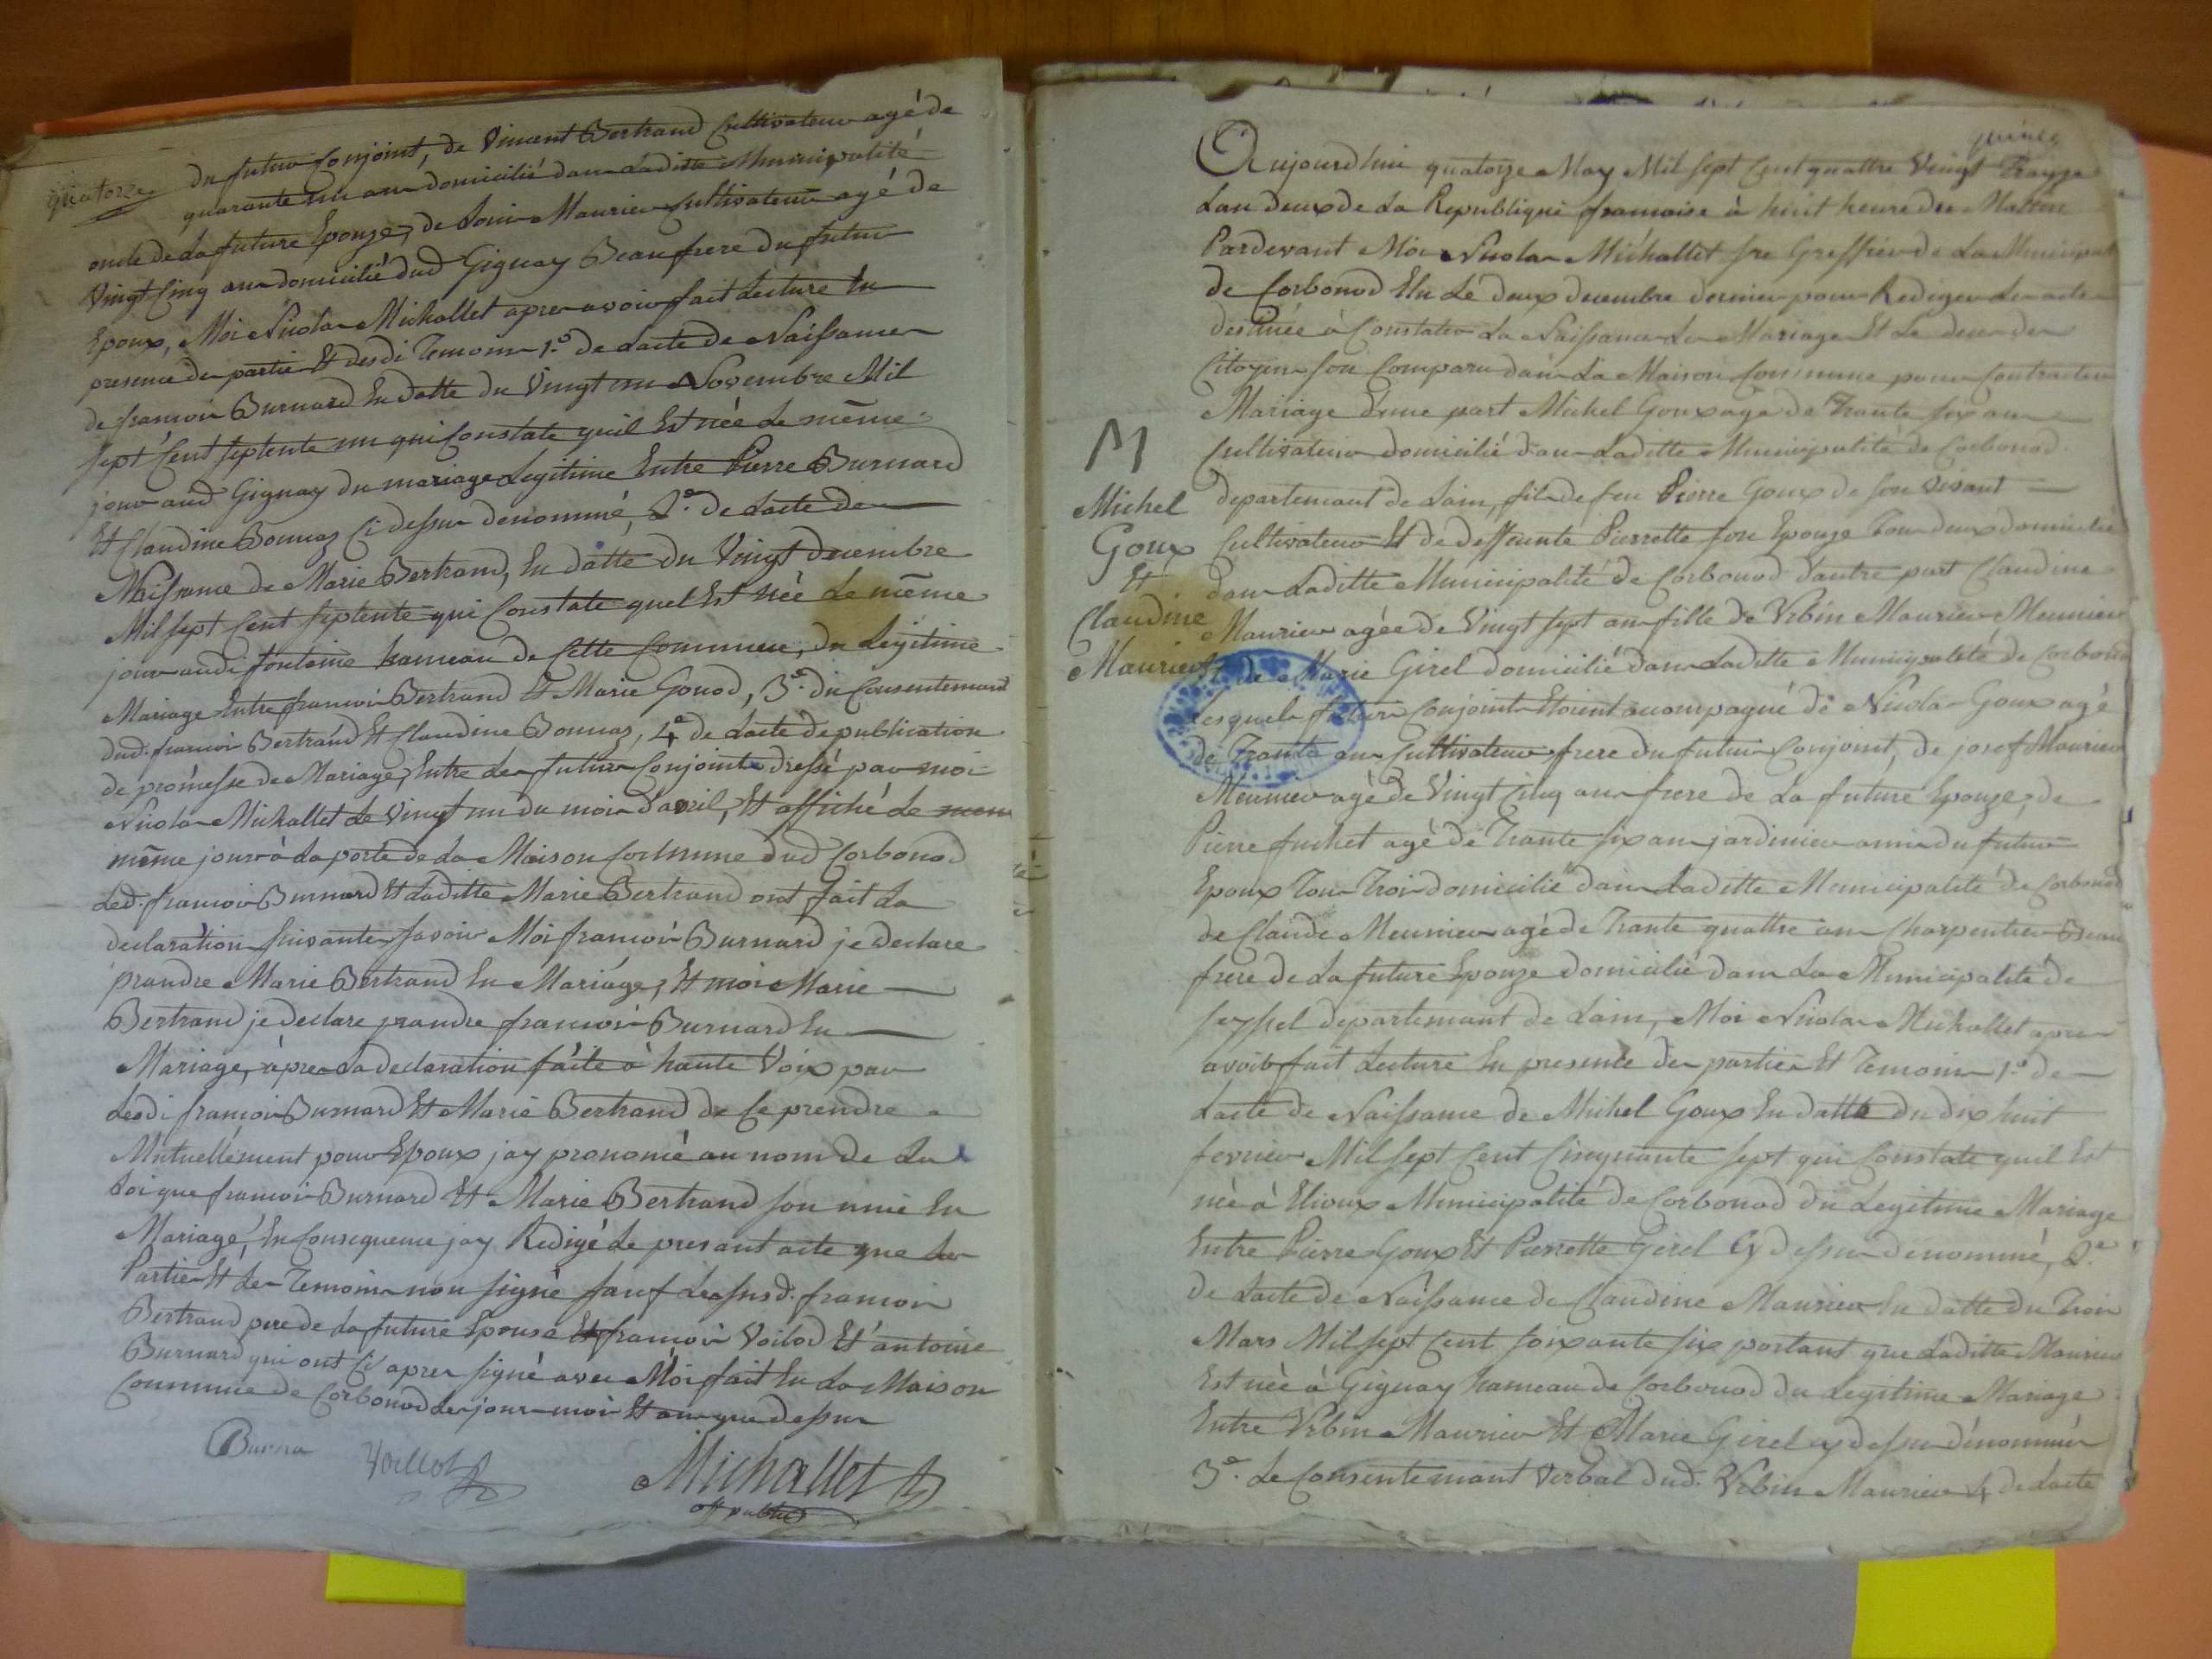 quatorze
du futur conjoint, de Vincent Bertrand Cultivateur agé de
quarante un ans domicilié dans Laditte Municipalité
oncle de La future Epouze, de Louis Maurier Cultivateur agé de
Vingt Cinq ans domicilié dud Gignay Beaufrere du futur
Epoux, Moi Nicolas Michallet apres avoir fait Lecture En
presence des parties Et desdi Temoins 1.º de Lacte de Naissance
de francois Burnard En datte du Vingt un Novembre Mil
sept Cent septente un qui Constate quil Est née Le même
jour aud Gignay du mariage Legitime Entre Pierre Burnard
Et Claudine Bonnaz Ci dessus denommé, 2.º de Lacte de
Naissance de Marie Bertrand, En datte du Vingt decembre
Mil sept Cent septente qui Constate quel Est née Le même
jour audi fontaine hameau de Cette Commune, du Legitime
Mariage Entre francois Bertrand Et Marie Gonod, 3.º du Consentemant
dud. francois Bertrand Et Claudine Bonnaz, 4.º de Lacte de publication
de promesse de Mariage, Entre Les futurs Conjoints dressé par moi
Nicolas Michallet Le Vingt un du mois davril, Et affiché Le mem
même jour à La porte de La Maison Commune dud Corbonod
Led. francois Burnard Et Laditte Marie Bertrand ont fait La
declaration suivante savoir Moi francois Burnard je declare
prandre Marie Bertrand En Mariage, Et moi Marie
Bertrand je declare prandre francois Burnard En
Mariage, àpres La declaration faite à haute Voix par
Lesdi francois Burnard Et Marie Bertrand de Ce prendre
Mutuellement pour Epoux jay prononcé au nom de La
Loi que francois Burnard Et Marie Bertrand son unie En
Mariage, En Consequence jay Redigé Le presant acte que Les
Parties Et Les Temoins non signé sauf Lesusd. francois
Bertrand pere de La future Epouse Et francois Voilod Et antoine
Burnard qui ont Ci apres signé avec Moi fait En La Maison
Commune de Corbonod Les jour mois Et an que dessus
Burna Voillot Michallet
off public
quinze
Aujourdhui quatorze May Mil sept Cent quattre Vingt Trayze
Lan deux de La Republique francaise à huit heure du Matin
Pardevant Moi Nicolas Michallet sre Greffier de La Municipal
de Corbonod Elu Le deux decembre dernier pour Rediger Les actes
destinée à Constater La Naissance Les Mariage Et Le deces des
Citoyens son Comparu dans La Maison Commune pour Contracter
Mariage dune part Michel Goux age de Trante six ans
Cultivateur domicilié dans Laditte Municipalité de Corbonod
M
Michel
Goux
Et
Claudine
Maurier
departemant de Lain, fils de feu Pierre Goux de son vivant
Cultivateur Et de deffunte Pierrette son Epouze Tous deux domicilie
dans Laditte Municipalité de Corbonod dautre part Claudine
Maurier agée de Vingt sept ans fille de Vrbin Maurier Meunier
Et de Marie Girel domicilié dans Laditte Municipalité de Corbonod
Lesquels futurs Conjoints Etoient acompagné de Nicolas Goux agé
de Trante ans Cultivateur frere du futur Conjoint, de josef Maurier
Meunier agé de Vingt Cinq ans frere de La future Epouze, de
Pierre fuchet agé de Trante six ans jardinier ami du futur
Epoux Tous Trois domicilié dans Laditte Municipalité de Corbonod
de Claude Meunier agé de Trante quattre ans Charpentier Beau
frere de La future Epouze domicilié dans La Municipalité de
seyssel departemant de Lain, Moi Nicolas Michallet apres
avoir fait Lecture En presence des parties Et Temoins 1.º de
Lacte de Naissance de Michel Goux En datte du dix huit
fevrier Mil sept Cent Cinquante sept qui Constate quil Est
née à Elioux Municipalité de Corbonod du Legitime Mariage
Entre Pierre Goux Et Pierrette Girel Cy dessus denommé, 2.º
de Lacte de Naissance de Claudine Maurier En datte du Trois
Mars Mil sept Cent soixante six portant que Laditte Maurier
Est née à Gignay hameau de Corbonod du Legitime Mariage
Entre Vrbin Maurier Et Marie Girel cy dessus dénommés
3.º Le Consentemant Verbal dud. Vrbin Maurier 4 de Lacte